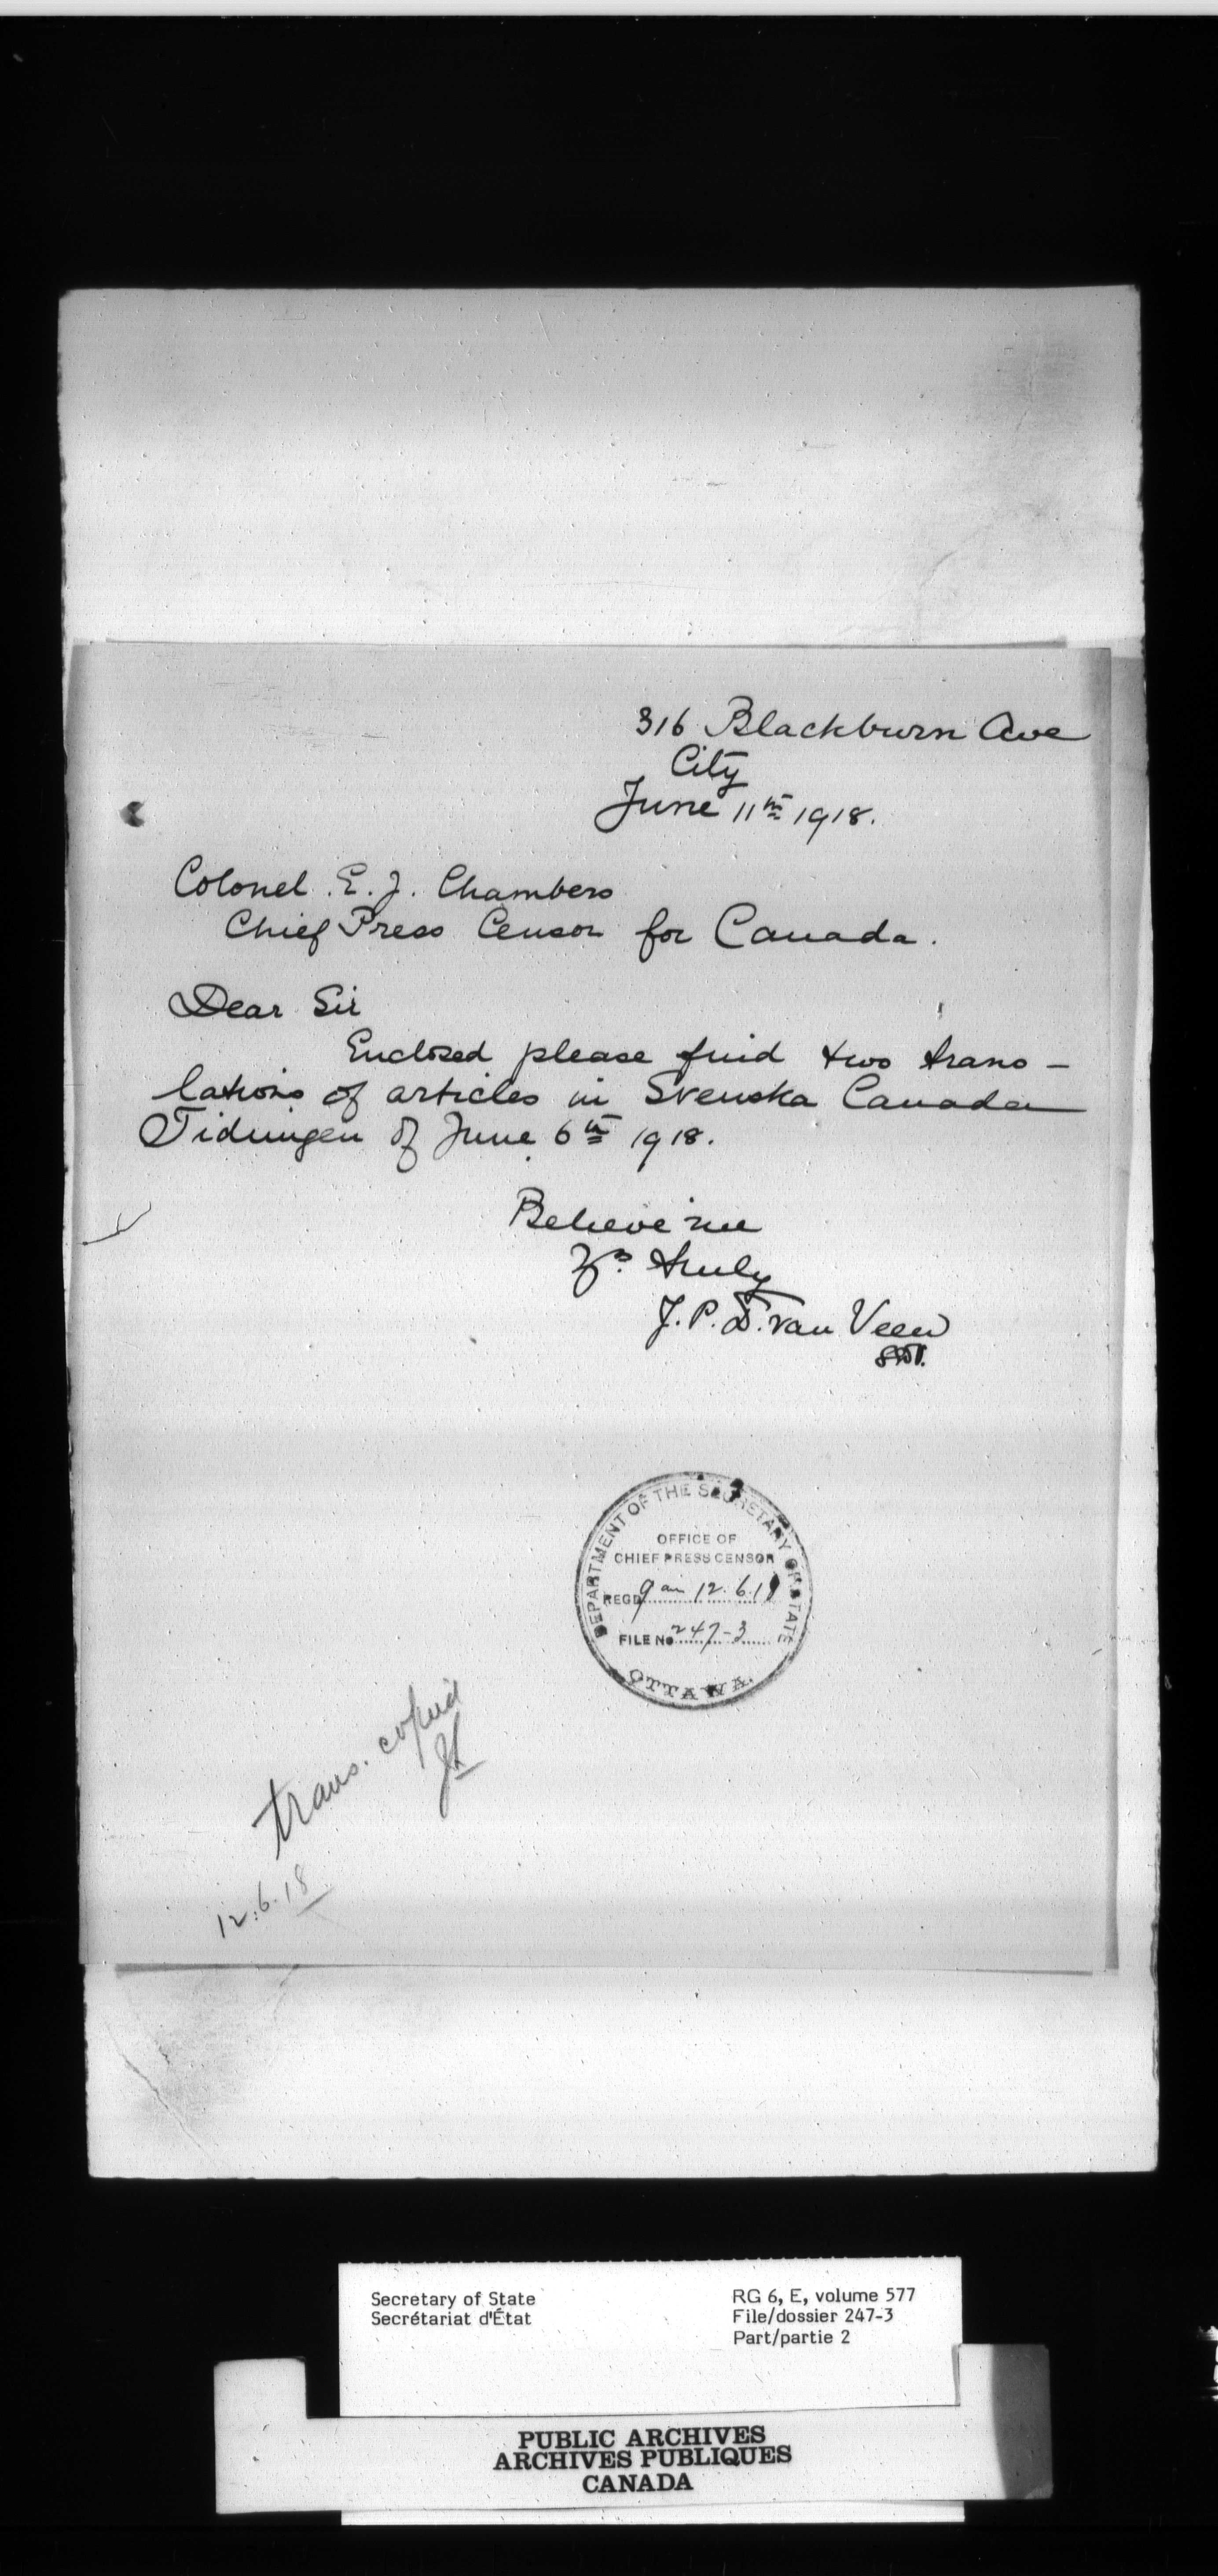 316 Blackburn Ave
City
June 11th 1918.
Colonel E. J. Chambers
Chief Press Censor for Canada.
Dear Sir
Enclosed please find two trans-
lations of articles in Svenska Canada
Tidningen of June 6th 1918.
Believe me
Yrs. truly
J. P. D. van Veen
DEPARTMENT OF THE SECRETARY OF STATE
OFFICE OF
CHIEF PRESS CENSOR
REGD 9 am 12.6.18
FILE No 247-3
OTTAWA.
trans. copied
12.6.18
Secretary of State
Secrétariat d'État
RG 6, E, volume 577
File/dossier 247-3
Part/partie 2
PUBLIC ARCHIVES
ARCHIVES PUBLIQUES
CANADA